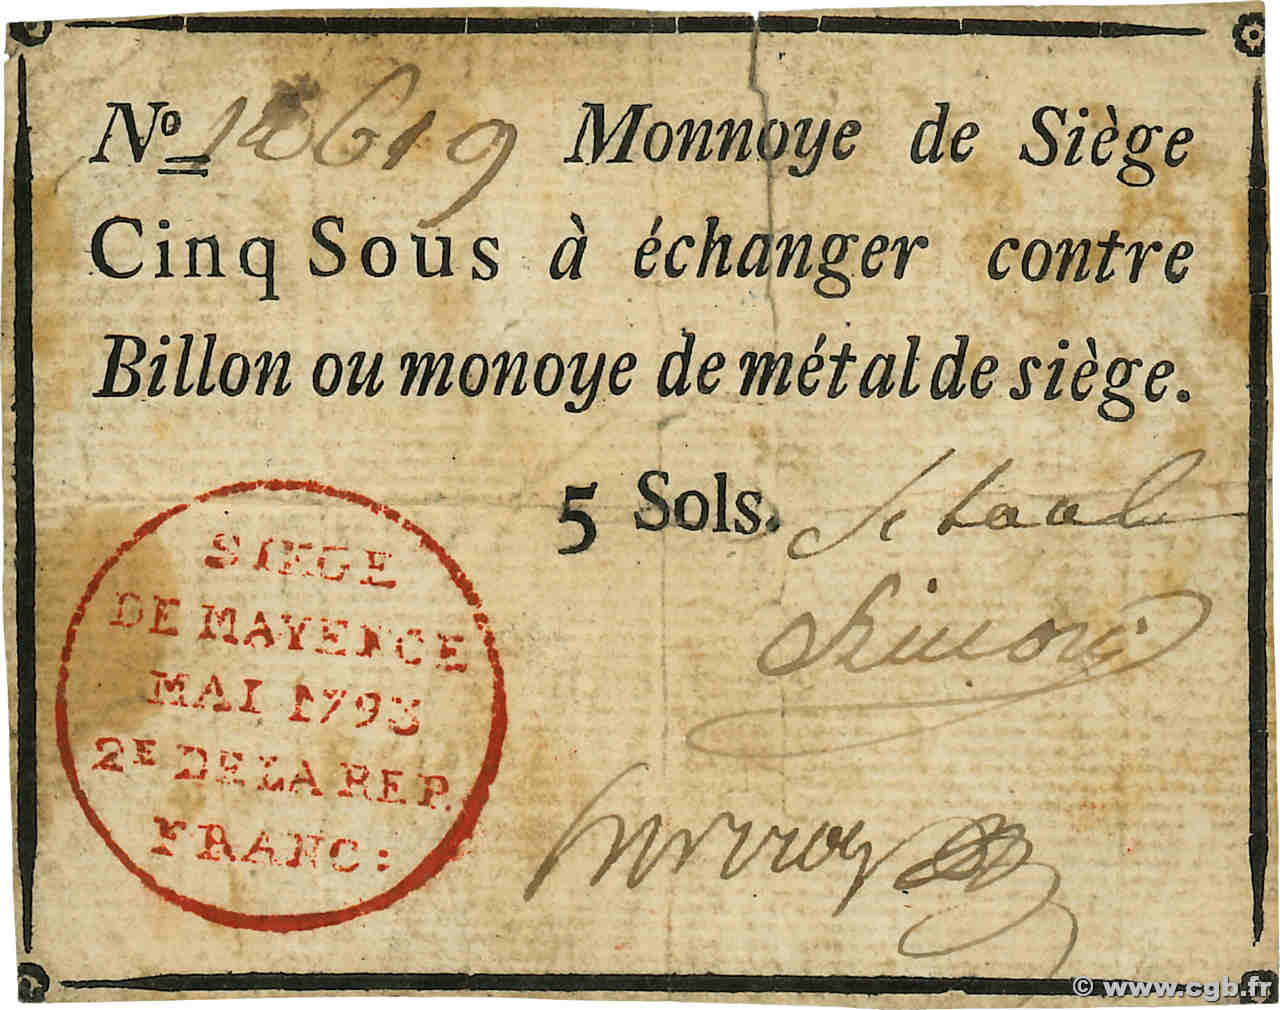 No 12619 Monnoye de Siège
Cinq Sous à échanger contre
Billon ou monoye de métal de siège.
5 Sols.
SIEGE
DE MAYENCE
MAI 1793
2E DE LA REP.
FRANC:
© www.cgb.fr